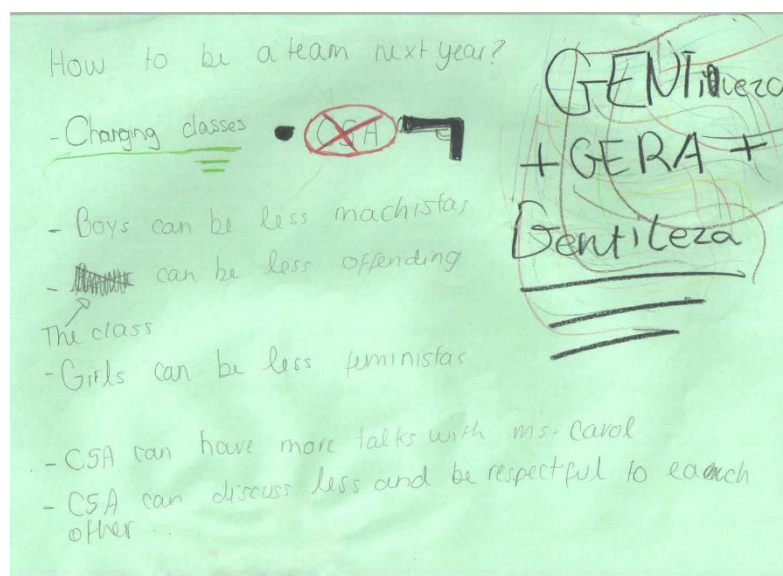 How to be a team next year?
- Changing classes
CSA
- Boys can be less machistas
- can be less offending
The class
- Girls can be less feministas
- CSA can have more talks with ms. Carol
- CSA can discuss less and be respectful to each
other
GENTileza
+ GERA +
Gentileza